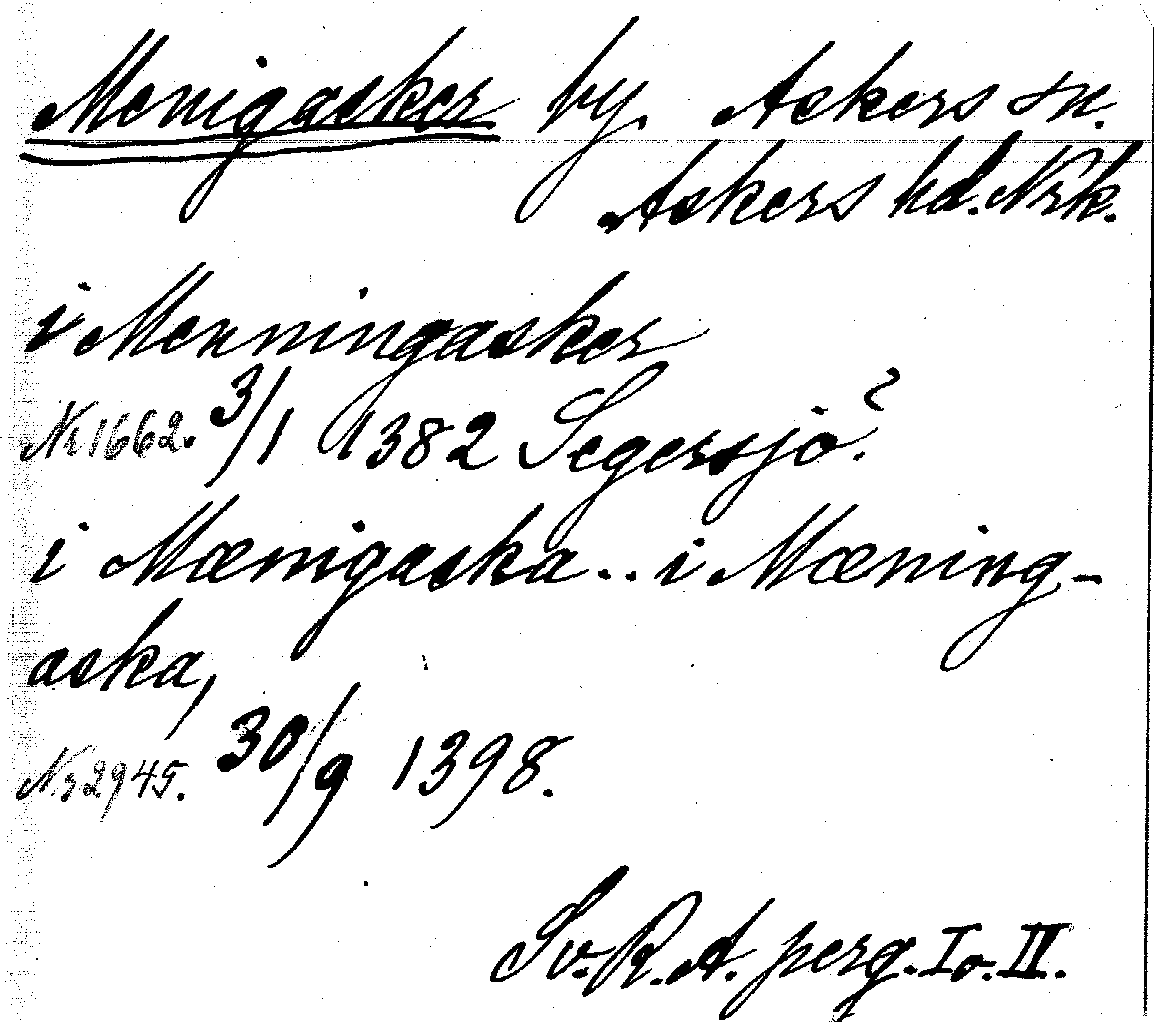 Menigasker by. Askers sn.
Askers hd. Nrk.
i Menningasker
Nr 1662. 3/1 1382 Segersjö?
i Mænigaska .. i Mæning-
aska,
Nr 2945. 30/9 1398.
Sv. R. A. perg. I o. II.